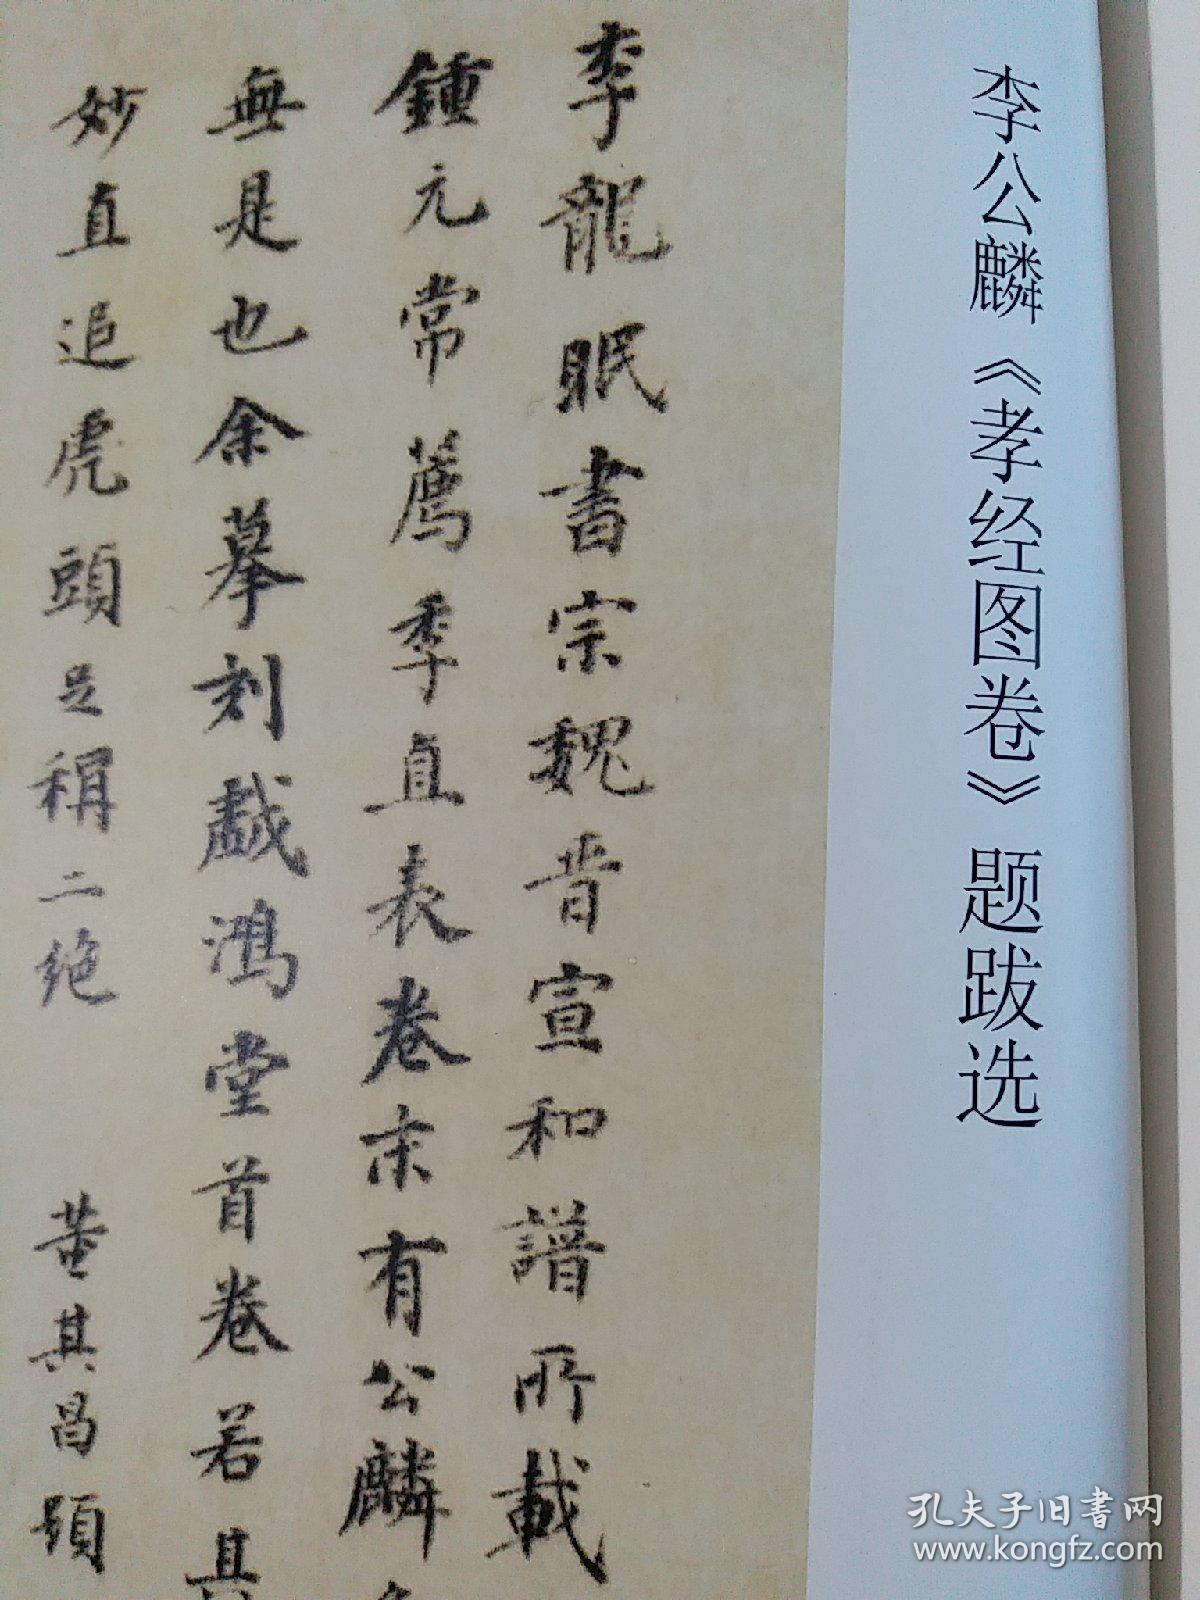 李公麟《孝经图卷》题跋选
李龍眠書宗魏晋宣和譜所載
鍾元常薦季直表卷末有公麟
無是也余摹刻戲鴻堂首卷若其
妙直追虎頭足稱二絶 董其昌題
孔夫子旧书网
www.kongfz.com